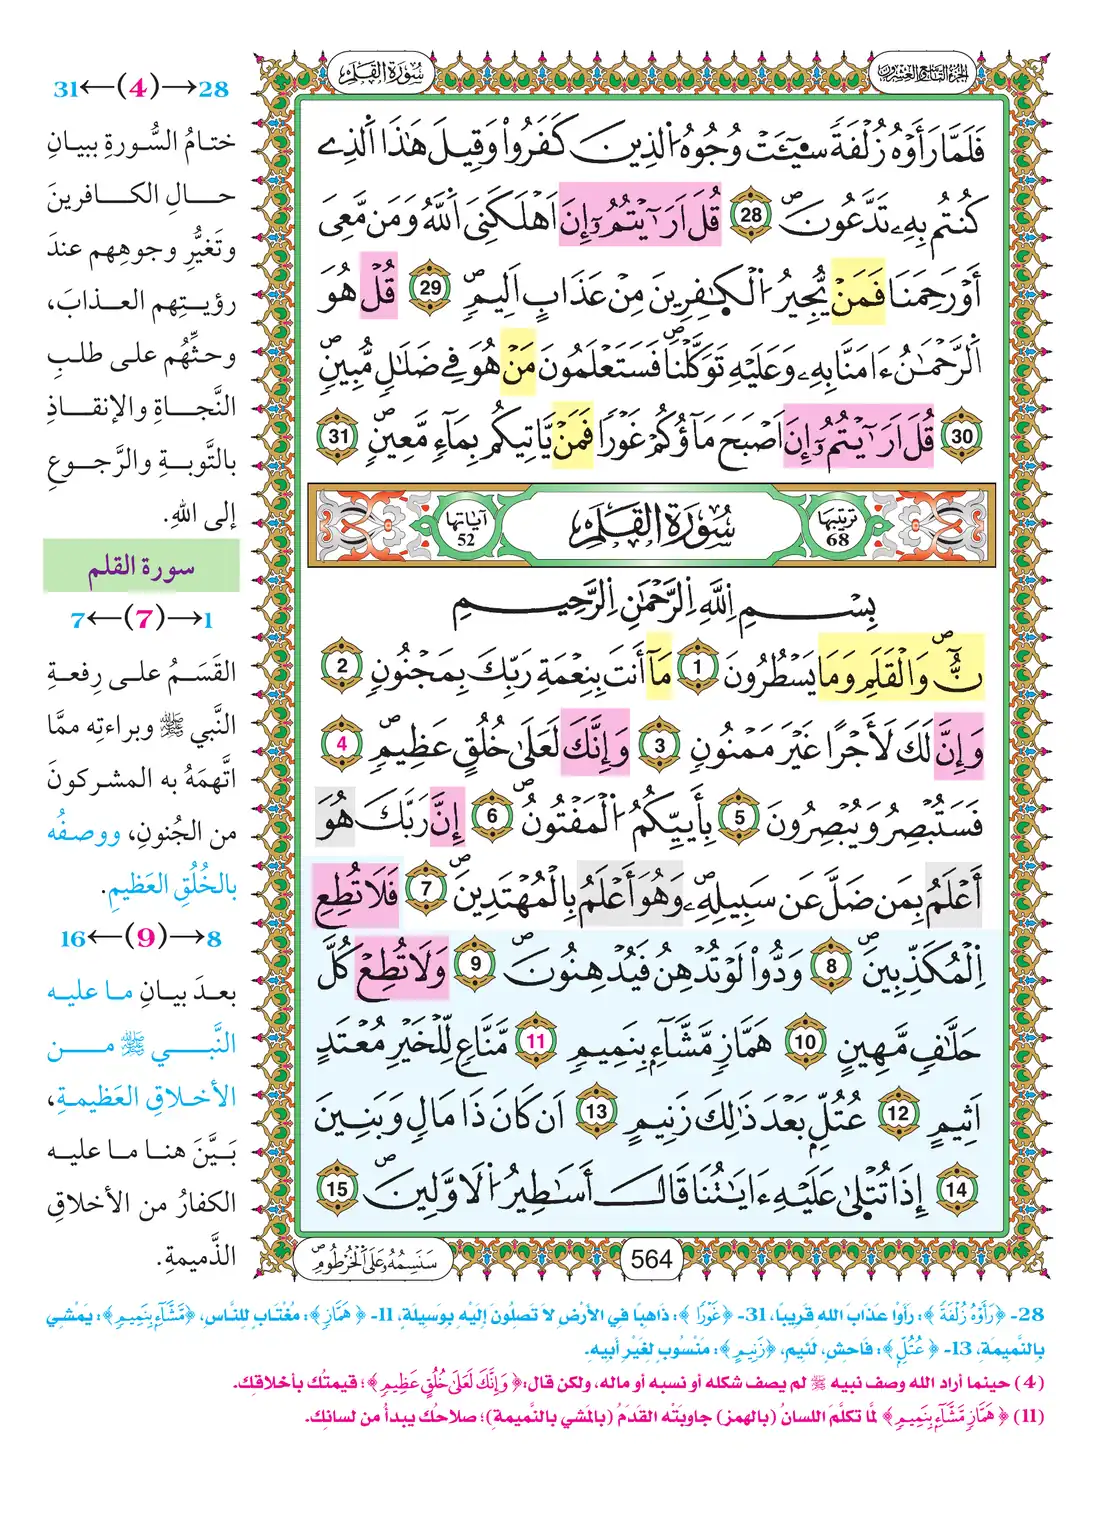 سُورَةُ القَلَمِ
الجزء التاسع والعشرون
فَلَمَّا رَأَوْهُ زُلْفَةً سِيٓـَٔتْ وُجُوهُ اُ۬لذِينَ كَفَرُواْ وَقِيلَ هَٰذَا اَ۬لذِے
كُنتُم بِهِۦ تَدَّعُونَۖ 28 قُلَ اَرَٰٓيْتُمُۥٓ إِنَ اَهْلَكَنِيَ اَ۬للَّهُ وَمَن مَّعِيَ
أَوْ رَحِمَنَا فَمَنْ يُّجِيرُ اُ۬لْكَٰفِرِينَ مِنْ عَذَابٍ اَلِيمٖۖ 29 قُلْ هُوَ
اَ۬لرَّحْمَٰنُ ءَامَنَّا بِهِۦ وَعَلَيْهِ تَوَكَّلْنَاۖ فَسَتَعْلَمُونَ مَنْ هُوَ فِے ضَلَٰلٖ مُّبِينٖۖ
30 قُلَ اَرَٰٓيْتُمُۥٓ إِنَ اَصْبَحَ مَآؤُكُمْ غَوْراٗ فَمَنْ يَّاتِيكُم بِمَآءٖ مَّعِينٖۖ 31
ترتيبها 68 سُورَةُ القَلَمِ آياتها 52
بِسْمِ اِ۬للَّهِ اِ۬لرَّحْمَٰنِ اِ۬لرَّحِيمِ
نُٓۖ وَالْقَلَمِ وَمَا يَسْطُرُونَ 1 مَآ أَنتَ بِنِعْمَةِ رَبِّكَ بِمَجْنُونٖ 2
وَإِنَّ لَكَ لَأَجْراً غَيْرَ مَمْنُونٖ 3 وَإِنَّكَ لَعَلَىٰ خُلُقٍ عَظِيمٖۖ 4
فَسَتُبْصِرُ وَيُبْصِرُونَ 5 بِأَييِّكُمُ اُ۬لْمَفْتُونُۖ 6 إِنَّ رَبَّكَ هُوَ
أَعْلَمُ بِمَن ضَلَّ عَن سَبِيلِهِۦۖ وَهُوَ أَعْلَمُ بِالْمُهْتَدِينَۖ 7 فَلَا تُطِعِ
اِ۬لْمُكَذِّبِينَۖ 8 وَدُّواْ لَوْ تُدْهِنُ فَيُدْهِنُونَۖ 9 وَلَا تُطِعْ كُلَّ
حَلَّافٖ مَّهِينٍ 10 هَمَّازٖ مَّشَّآءِۢ بِنَمِيمٖ 11 مَّنَّاعٖ لِّلْخَيْرِ مُعْتَدٍ
اَثِيمٍ 12 عُتُلِّۢ بَعْدَ ذَٰلِكَ زَنِيمٍ 13 اَن كَانَ ذَا مَالٖ وَبَنِينَ
14 إِذَا تُتْلَىٰ عَلَيْهِ ءَايَٰتُنَا قَالَ أَسَٰطِيرُ اُ۬لَاوَّلِينَۖ 15
564
سَنَسِمُهُۥ عَلَى اَ۬لْخُرْطُومِۖ
28→(4)←31
ختامُ السُّورةِ ببيانِ
حالِ الكافرينَ
وتَغيُّرِ وجوهِهم عندَ
رؤيتِهم العذابَ،
وحثِّهُم على طلبِ
النَّجاةِ والإنقاذِ
بالتَّوبةِ والرَّجوعِ
إلى اللهِ.
سورة القلم
1→(7)←7
القَسَمُ على رِفعةِ
النَّبي ﷺ وبراءتِه ممَّا
اتَّهمَهُ به المشركونَ
من الجُنونِ، ووصفُه
بالخُلُقِ العَظيمِ.
8→(9)←16
بعدَ بيانِ ما عليه
النَّبي ﷺ من
الأخلاقِ العَظيمةِ،
بَيَّنَ هنا ما عليه
الكفارُ من الأخلاقِ
الذَّميمةِ.
28- ﴿رَأَوْهُ زُلْفَةً﴾: رَأَوْا عَذَابَ اللهِ قَرِيبًا، 31- ﴿غَوْرًا﴾: ذَاهِبًا فِي الأَرْضِ لَا تَصِلُونَ إِلَيْهِ بِوَسِيلَةٍ، 11- ﴿هَمَّازٍ﴾: مُغْتَابٍ لِلنَّاسِ، ﴿مَّشَّآءِۢ بِنَمِيمٍ﴾: يَمْشِي
بِالنَّمِيمَةِ، 13- ﴿عُتُلٍّ﴾: فَاحِشٍ، لَئِيمٍ، ﴿زَنِيمٍ﴾: مَنْسُوبٍ لِغَيْرِ أَبِيهِ.
(4) حينما أراد الله وصف نبيه ﷺ لم يصف شكله أو نسبه أو ماله، ولكن قال: ﴿وَإِنَّكَ لَعَلَىٰ خُلُقٍ عَظِيمٍ﴾؛ قيمتُك بأخلاقِك.
(11) ﴿هَمَّازٍ مَّشَّآءِۢ بِنَمِيمٍ﴾ لمَّا تكلَّمَ اللسانُ (بالهمزِ) جاوبَتْه القَدَمُ (بالمَشي بالنَّميمة)؛ صلاحُك يبدأُ من لسانِك.